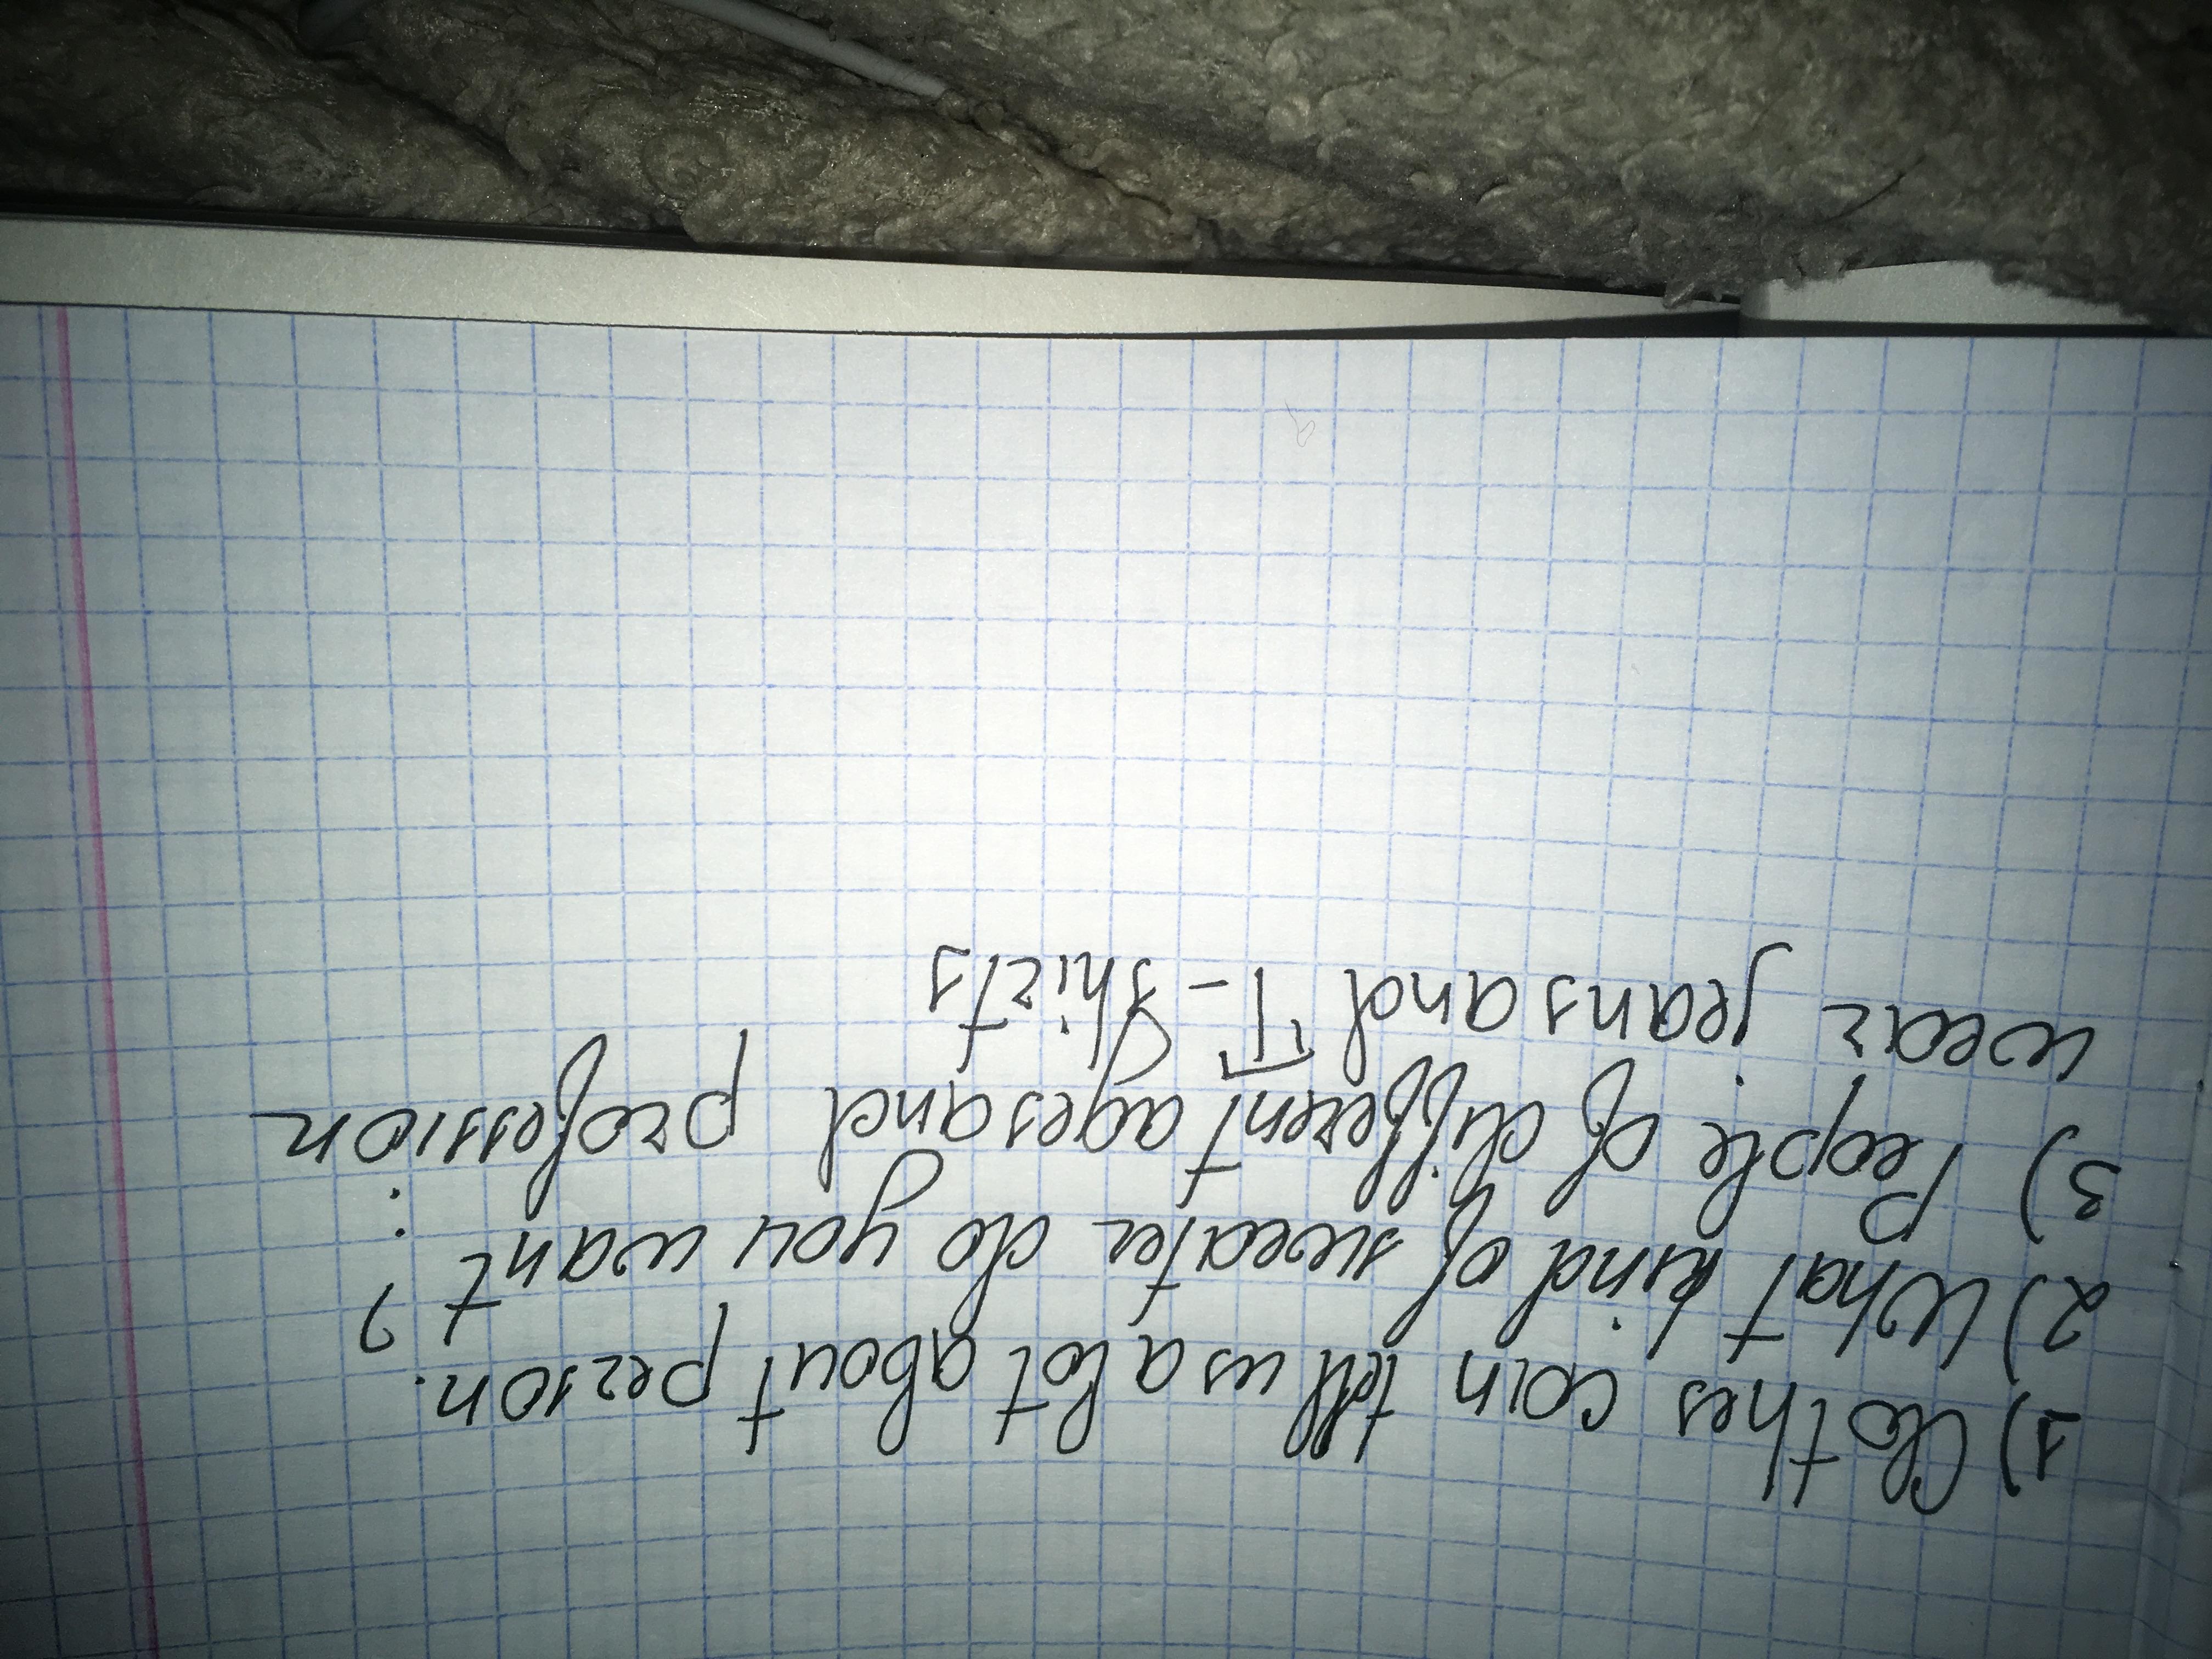 1) Clothes can tell us a lot about person.
2) What kind of sweater do you want?
3) People of different ages and profession
wear jeans and T-Shirts